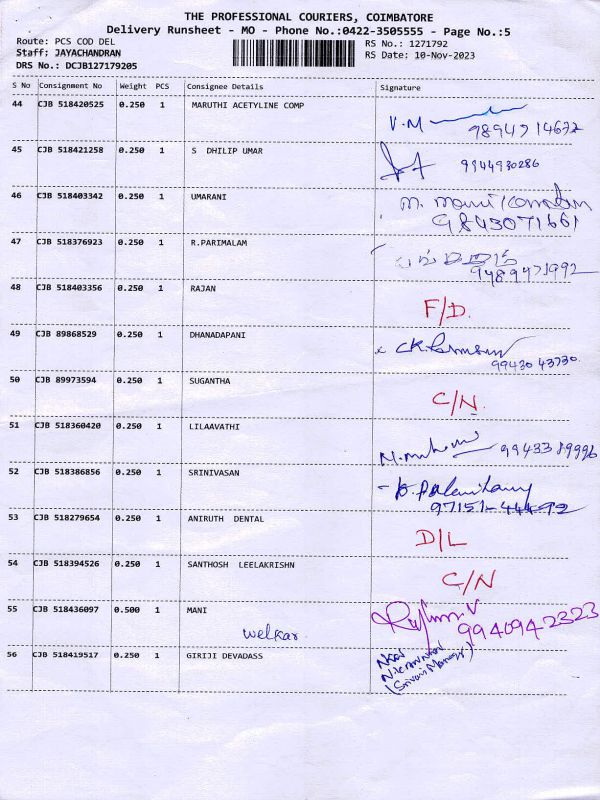 THE PROFESSIONAL COURIERS, COIMBATORE
Delivery Runsheet - MO - Phone No.:0422-3505555 - Page No.:5
Route: PCS COD DEL RS No.: 1271792
Staff: JAYACHANDRAN RS Date: 10-Nov-2023
DRS No.: DCJB127179205
S No Consignment No Weight PCS Consignee Details Signature
44 CJB 518420525 0.250 1 MARUTHI ACETYLINE COMP V.M
9894714672
45 CJB 518421258 0.250 1 S DHILIP UMAR 9944930286
46 CJB 518403342 0.250 1 UMARANI
9843071661
47 CJB 518376923 0.250 1 R.PARIMALAM
9489471992
48 CJB 518403356 0.250 1 RAJAN F/D.
49 CJB 89868529 0.250 1 DHANADAPANI
99430 43730
50 CJB 89973594 0.250 1 SUGANTHA C/N.
51 CJB 518360420 0.250 1 LILAAVATHI
52 CJB 518386856 0.250 1 SRINIVASAN
97151-44492
53 CJB 518279654 0.250 1 ANIRUTH DENTAL D/L
54 CJB 518394526 0.250 1 SANTHOSH LEELAKRISHN C/N
55 CJB 518436097 0.500 1 MANI
994094-2323
56 CJB 518419517 0.250 1 GIRIJI DEVADASS